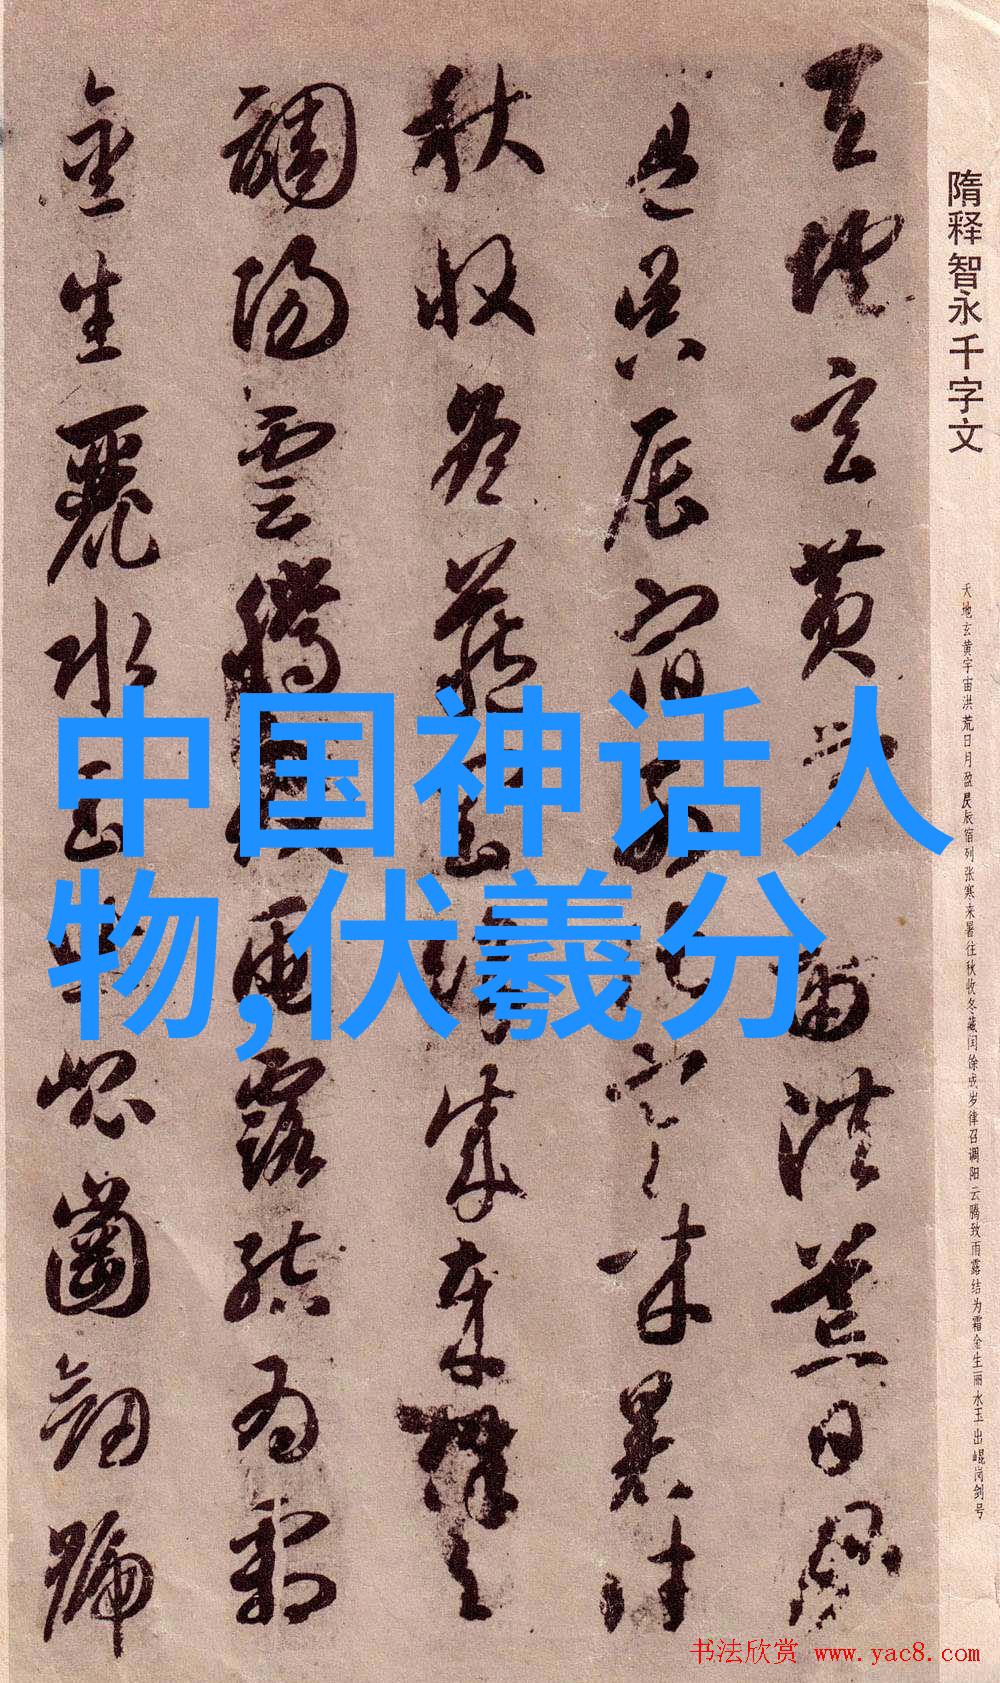 中国神话人
物,伏羲分
隋释智永千字文
天地玄黄宇宙洪荒日月盈昃辰宿列张寒来暑往秋收冬藏闰馀成岁律召调阳云腾致雨露结为霜金生丽水玉出崐岗剑号
天地玄黄宇宙洪荒日月
盈昃辰宿列張寒来暑往
秋收冬蔵閏餘成歳律召
調陽雲騰致雨露結為霜
金生麗水玉出崐崗劒號
书法欣赏 www.yac8.com